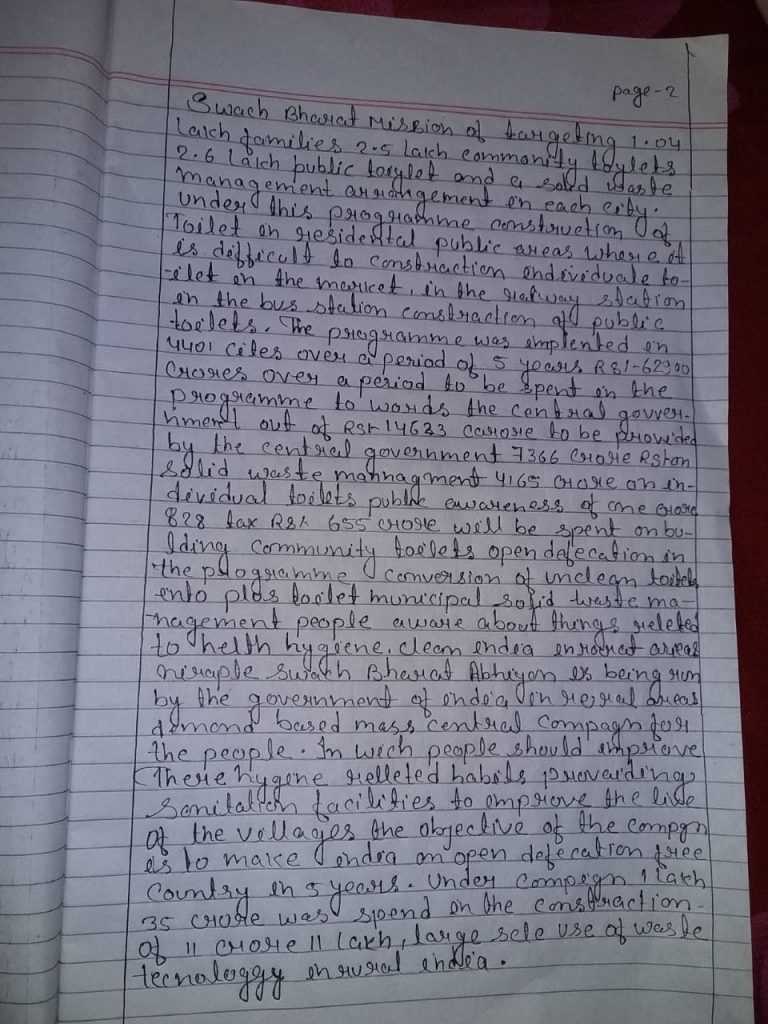 page-2
Swach Bharat Mission of targeting 1.04
lakh families 2.5 lakh commonity toylets
2.6 lakh public toylet and a solid waste
management arrangement in each city.
under this programme construction of
Toilet in residental public areas where it
is difficult to constraction endividuale to-
ilet in the market, in the railway station
in the bus station constraction of public
toilets. The programme was emplented in
4401 cites over a period of 5 years RS1-62900
Crores over a period to be spent in the
programme to words the central gouver-
nment out of 14623 carore to be provided
by the central government 7366 crore
solid waste mannagment 4165 crore on in-
dividual toilets public awareness of one crore
828 tax 655 crore will be spent on bu-
ilding community toilets open defecation in
the programme conversion of unclean toilets
ento toilet municipal solid waste ma-
nagement people aware about things releted
to helth hygiene. clean endia areas
Swach Bharat Abhiyan is being run
by the government of endia in areas
demond based mass central compagn for
the people. In wich people should emprove
There hygene relleted habits
Sanitation facilities to emprove the
of the villages the objective of the compgn
is to make endia an open defecation free
Country in 5 years. Under compegn 1 lakh
35 crore was spend on the constraction-
of 11 crore 11 lakh, large sele use of waste
tecnologgy in rural endea.